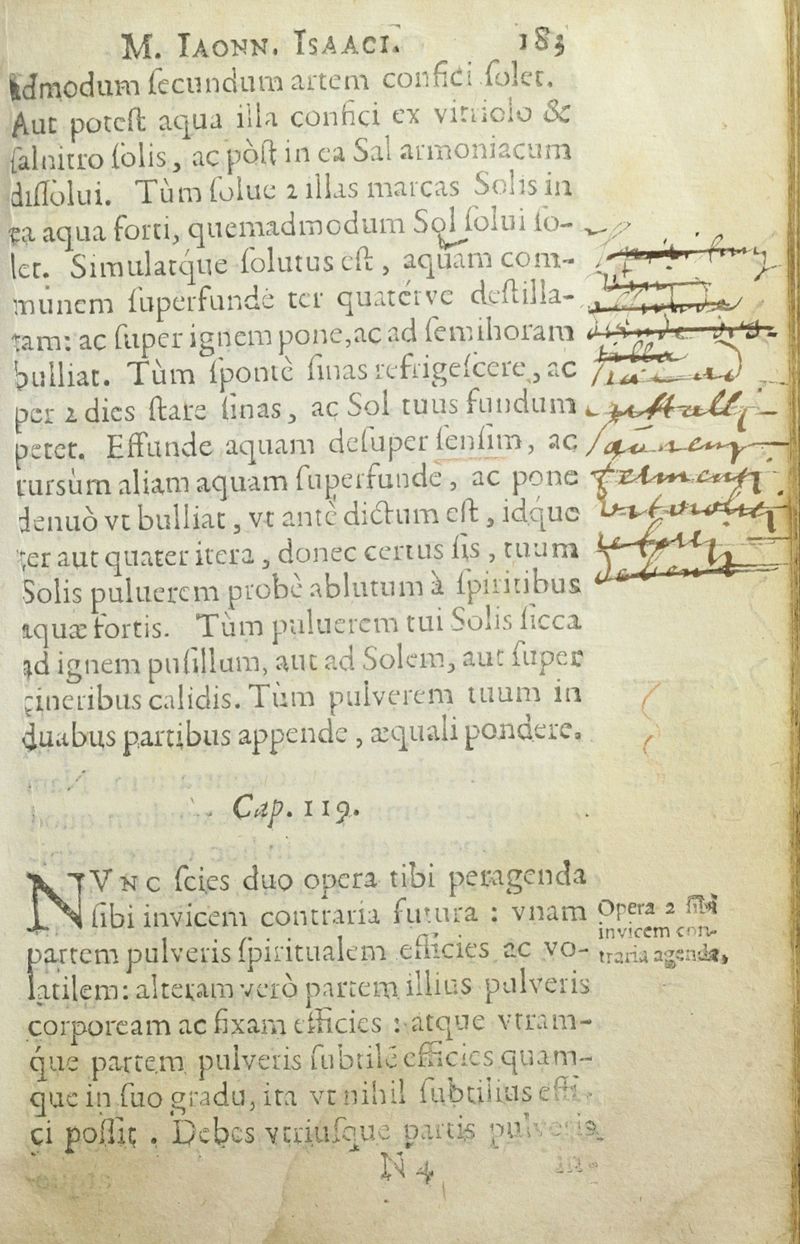 M. IAONN. ISAACI. 183
admodum ſecundum artem confici ſolet.
Aut poteſt aqua illa confici ex vitriolo &
ſalnitro ſolis, ac pòſt in ea Sal armoniacum
diſſolui. Tùm ſolue 2 illas marcas Solis in
ea aqua forti, quemadmodum Sol ſolui ſo-
let. Simulatque ſolutus eſt, aquam com-
munem ſuperfunde ter quatérve deſtilla-
tam: ac ſuper ignem pone, ac ad ſemihoram
bulliat. Tùm ſpontè ſinas refrigeſcere, ac
per 2 dies ſtare ſinas, ac Sol tuus fundum
petet. Effunde aquam deſuper ſenſim, ac
rursùm aliam aquam ſuperfunde, ac pone
denuò vt bulliat, vt antè dictum eſt, idque
ter aut quater itera, donec certus ſis, tuum
Solis puluerem probè ablutum à ſpiritibus
aquæ fortis. Tùm puluerem tui Solis ſicca
ad ignem puſillum, aut ad Solem, aut ſuper
cineribus calidis. Tùm pulverem tuum in
duabus partibus appende, æquali pondere.
Cap. 119.
NVNC ſcies duo opera tibi peragenda
ſibi invicem contraria futura : vnam
partem pulveris ſpiritualem efficies ac vo-
latilem: alteram verò partem illius pulveris
corpoream ac fixam efficies : atque vtram-
que partem pulveris ſubtilé efficies quam-
que in ſuo gradu, ita vt nihil ſubtilius effi-
ci poſſit. Debes vtriuſque partis pulveris
N 4 in-
Opera 2 ſibi
invicem con-
traria agenda,